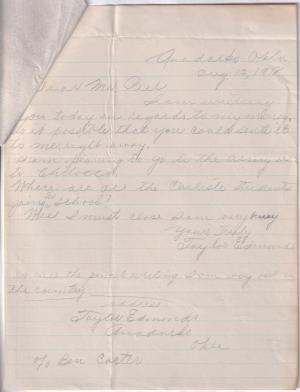 Anadarko Okla
Aug 12, 1918
Dear Mr.
I am writing
you today in regards to my money,
is it possible that you could send it
to me right away.
I am planning to go to the
to Chilocco.
Where are all the Carlisle students
going to school?
Well I must close I am very busy
Yours Truly
Taylor Edmonds
the pencil writing I am way out in
the country.
address
Taylor Edmonds
Anadarko
Okla
c/o Ben Carter